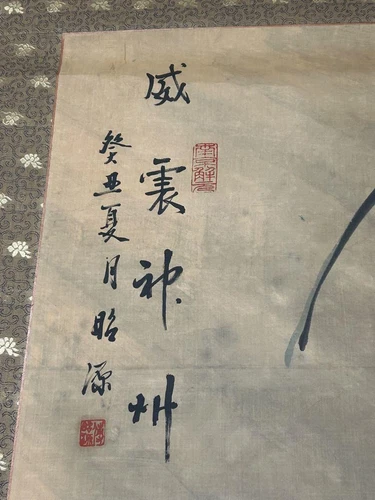 威震神州
癸丑夏月昭源